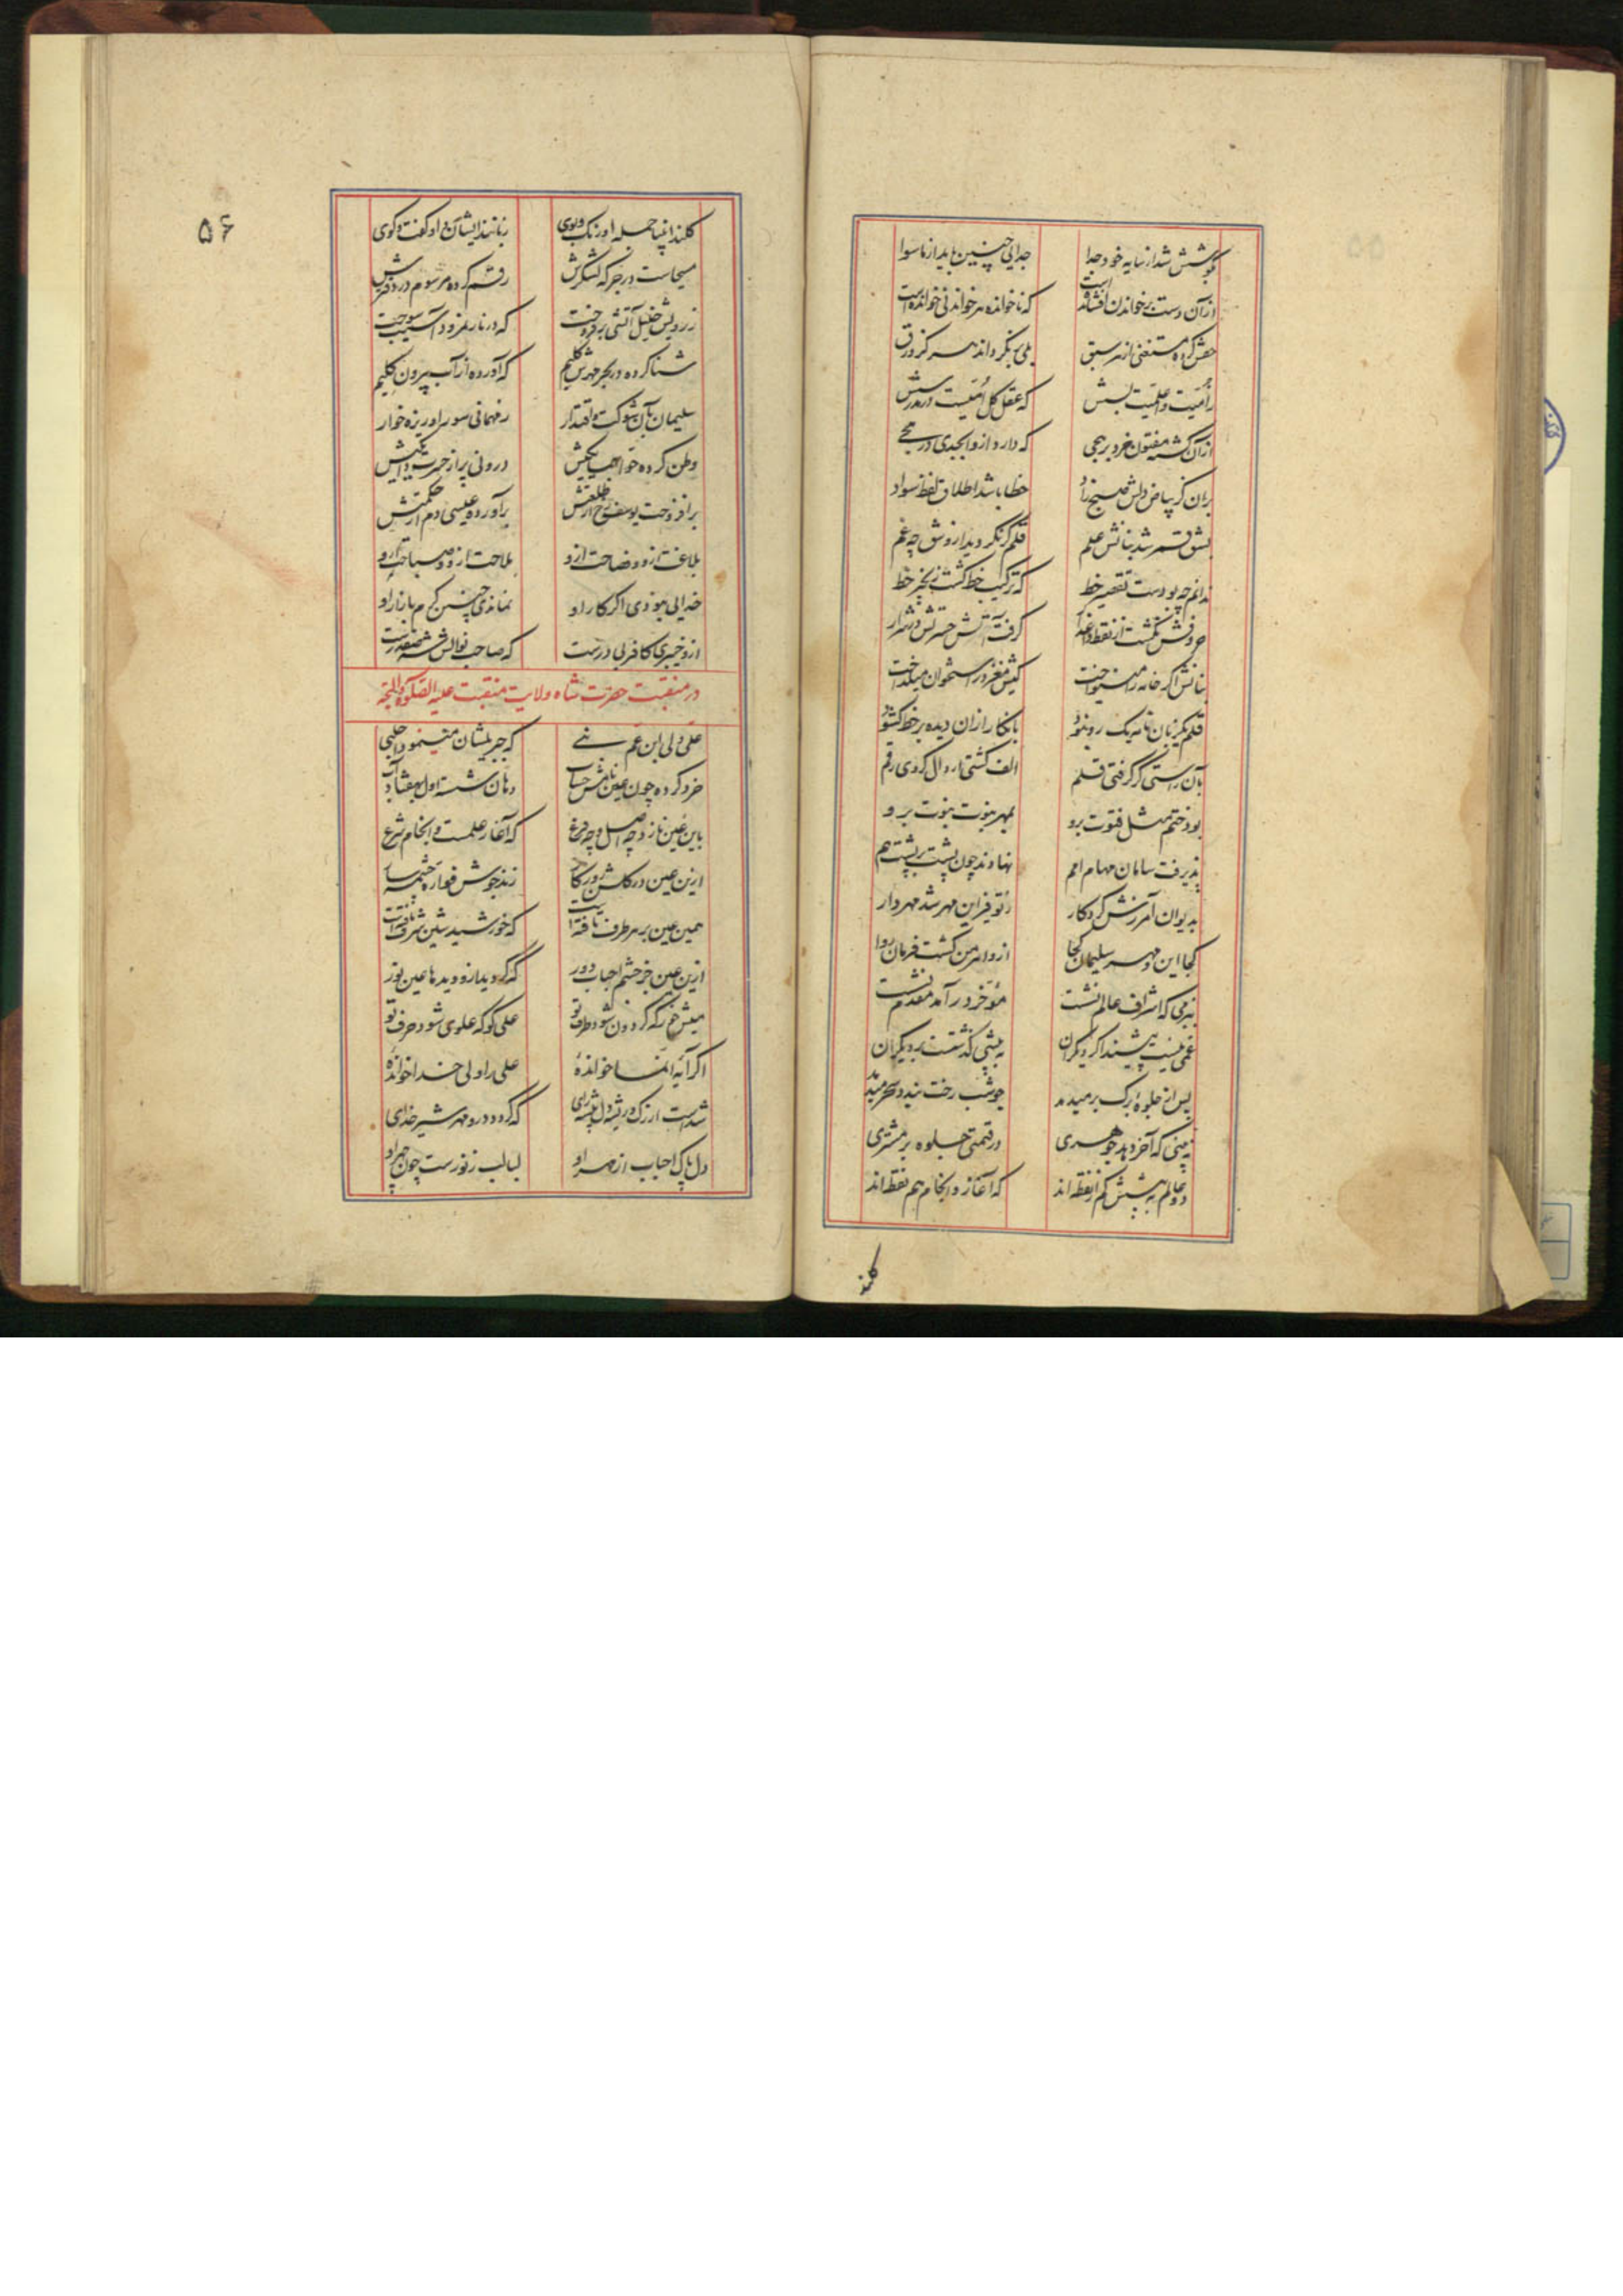 بکوشش شد از سایه خود جدا
جدایی چنین باید از ماسوا
از آن دست بر خواندن افشانده است
که ناخوانده هر خواندنی خوانده است
حقش کرده مستغنی از هر سبق
بلی برنگرداند سر کز ورق
ز امیت و اعلمیت بسش
که عقل کل امیست در مدرسش
از آن گشته مفتون خرد بر هجی
که دارد ازو ابجدی در هجی
بر آن کز بیاض دلش صبح زاد
خطا باشد اطلاق لفظ سواد
بشق قمر شد بنانش علم
قلم گر نگردید ازو شق چه غم
ندانم چه بودست تقصیر خط
که ترکیب خط گشت زنجیر خط
حروفش نگشت از نقط داغدار
گرفت آتش حسرتش در شرار
بنانش اگر خامه را می‌نواخت
کیش مغز در استخوان میگداخت
قلم یکزبان نامه یک رو نبود
بانکار از آن دیده بر خط گشود
بآن راستی گر گرفتی قلم
الف گشتی ار دال کردی رقم
بود ختم مثل فتوت برو
بمهر نبوت نبوت برو
پذیرفت سامان مهام امم
نهادند چون پشت بر پشت هم
بدیوان آمرزش کردگار
ز توقیر این مهر شد مهردار
کجا این و مهر سلیمان کجا
ازو اهرمن گشت فرمان روا
بزمی که اشراف عالم نشست
مؤخر در آمد مقدم نشست
غمی نیست پیشند اگر دیگران
به پیشی گذشتست بر دیگران
پس از جلوهٔ برگ بر میدمد
چو شب رخت بندد سحر میدمد
نه بینی که آخر دهد جوهری
در قیمتی جلوه بر مشتری
دو عالم به پیشش کم از نقطه‌اند
که آغاز و انجام هم نقطه‌اند
کلند
۵۶
گلند انبیا جمله او رنگ و بوی
زبانند ایشان و او گفت و گوی
مسیحاست در جرگه لشکرش
رقم کرده مرسوم در دفترش
ز رویش خلیل آتشی برفروخت
که در نار نمرود آسیب سوخت
شنا کرده در بحر مهرش کلیم
که آورده از آب بیرون گلیم
سلیمان بآن شوکت و اقتدار
ز مهمانی سور او ریزه خوار
برافروخت یوسف رخ از طلعتش
برآورده عیسی دم از حکمتش
بلاغت ازو و فصاحت ازو
ملاحت ازو و صباحت ازو
خدایی نبودی اگر کار او
نماندی چنین گرم بازار او
ازو خیبری کافری درست
که صاحب نوالش
در منقبت حضرت شاه ولایت منقبت علیه الصلوة والتحیه
علی ولی ابن عم نبی
که جبریلشان
خرد کرده چون عین نامش حساب
دهان شسته اول بهفتاد آب
باین عین نازد چه اصل و چه فرع
که آغاز علمست و انجام شرع
ازین عین در گلشن روزگار
زند جوش فواره چشمه سار
همین عین بر هر طرف تافته است
که خورشید شین شرف یافته است
ازین عین جز چشم احباب دور
که گردید ازو دیدها عین نور
علی گو که علوی شود حرف تو
اگر آیه انما خوانده
علی را ولی خدا خوانده
شدست ار رگ و ریشه دل بیشه‌زای
که گردد درو مهر شیر خدای
دل پاک احباب از مهر او
لبالب ز نورست چون چهر او